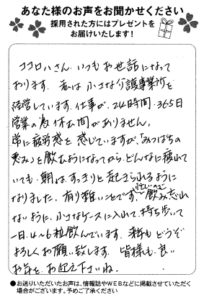 あなた様のお声をお聞かせください
採用された方にはプレゼントを
お届けいたします！
ココロハさん、いつもお世話になって
おります。私は小さな介護事業所を
経営しています。仕事が、24時間、365日
営業の為休む間がありません。
常に疲労感を感じていますが、「みつばちの
恵み」を飲むようになってから、どんなに疲れて
いても、朝はすっきりと起きられるように
なりました。有り難いことです。飲み忘れ
ないように、小さなケースに入れて、持ち歩いて
一日、4〜6粒飲んでいます。来年もどうぞ
よろしくお願い致します。皆様も、良い
お年をお迎え下さいね。
●お送りいただいたお声は、情報誌やWEBなどに掲載させていただく
場合がございます。予めご了承ください